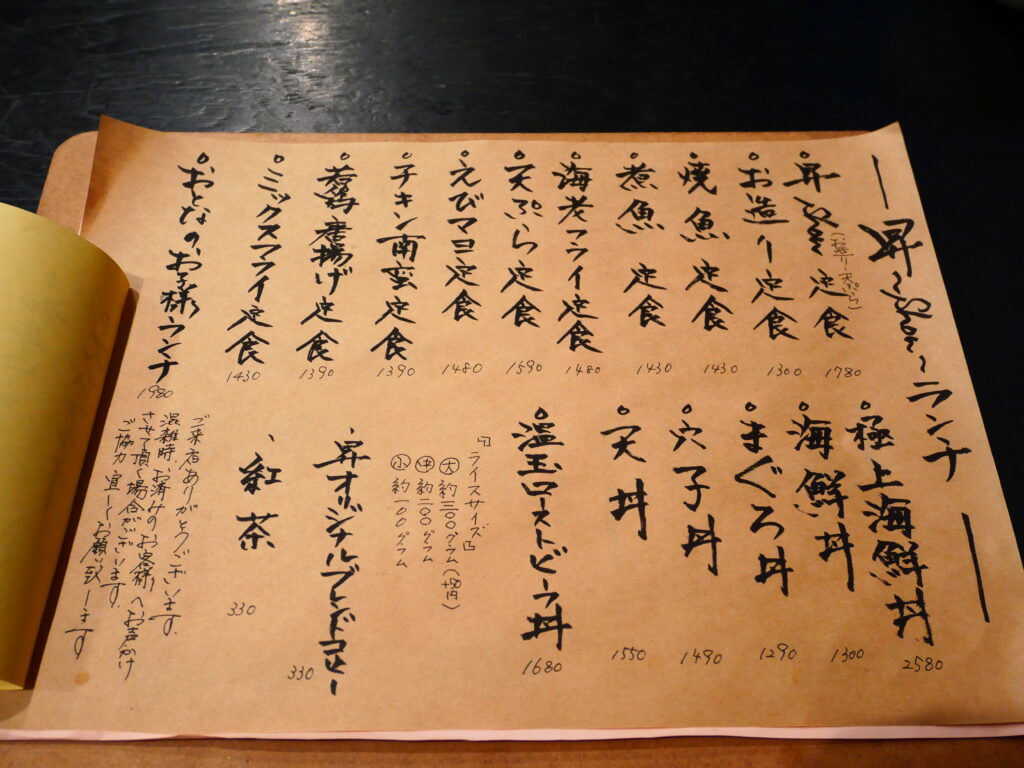 昇〜のぼる〜ランチ
昇のぼる定食
(お造り、天ぷら)
1780
お造り定食
1300
焼魚定食
1430
煮魚定食
1430
海老フライ定食
1480
天ぷら定食
1590
えびマヨ定食
1480
チキン南蛮定食
1390
若鶏唐揚げ定食
1390
ミックスフライ定食
1430
おとなのお子様ランチ
1980
極上海鮮丼
2580
海鮮丼
1300
まぐろ丼
1290
穴子丼
1490
天丼
1550
温玉ローストビーフ丼
1680
『ライスサイズ』
大 約三〇〇グラム(+50円)
中 約二〇〇グラム
小 約一〇〇グラム
昇オリジナルブレンドコーヒー
330
紅茶
330
ご来店ありがとうございます。
混雑時、お済みのお客様へお声かけ
させて頂く場合がございます。
ご協力宜しくお願い致します